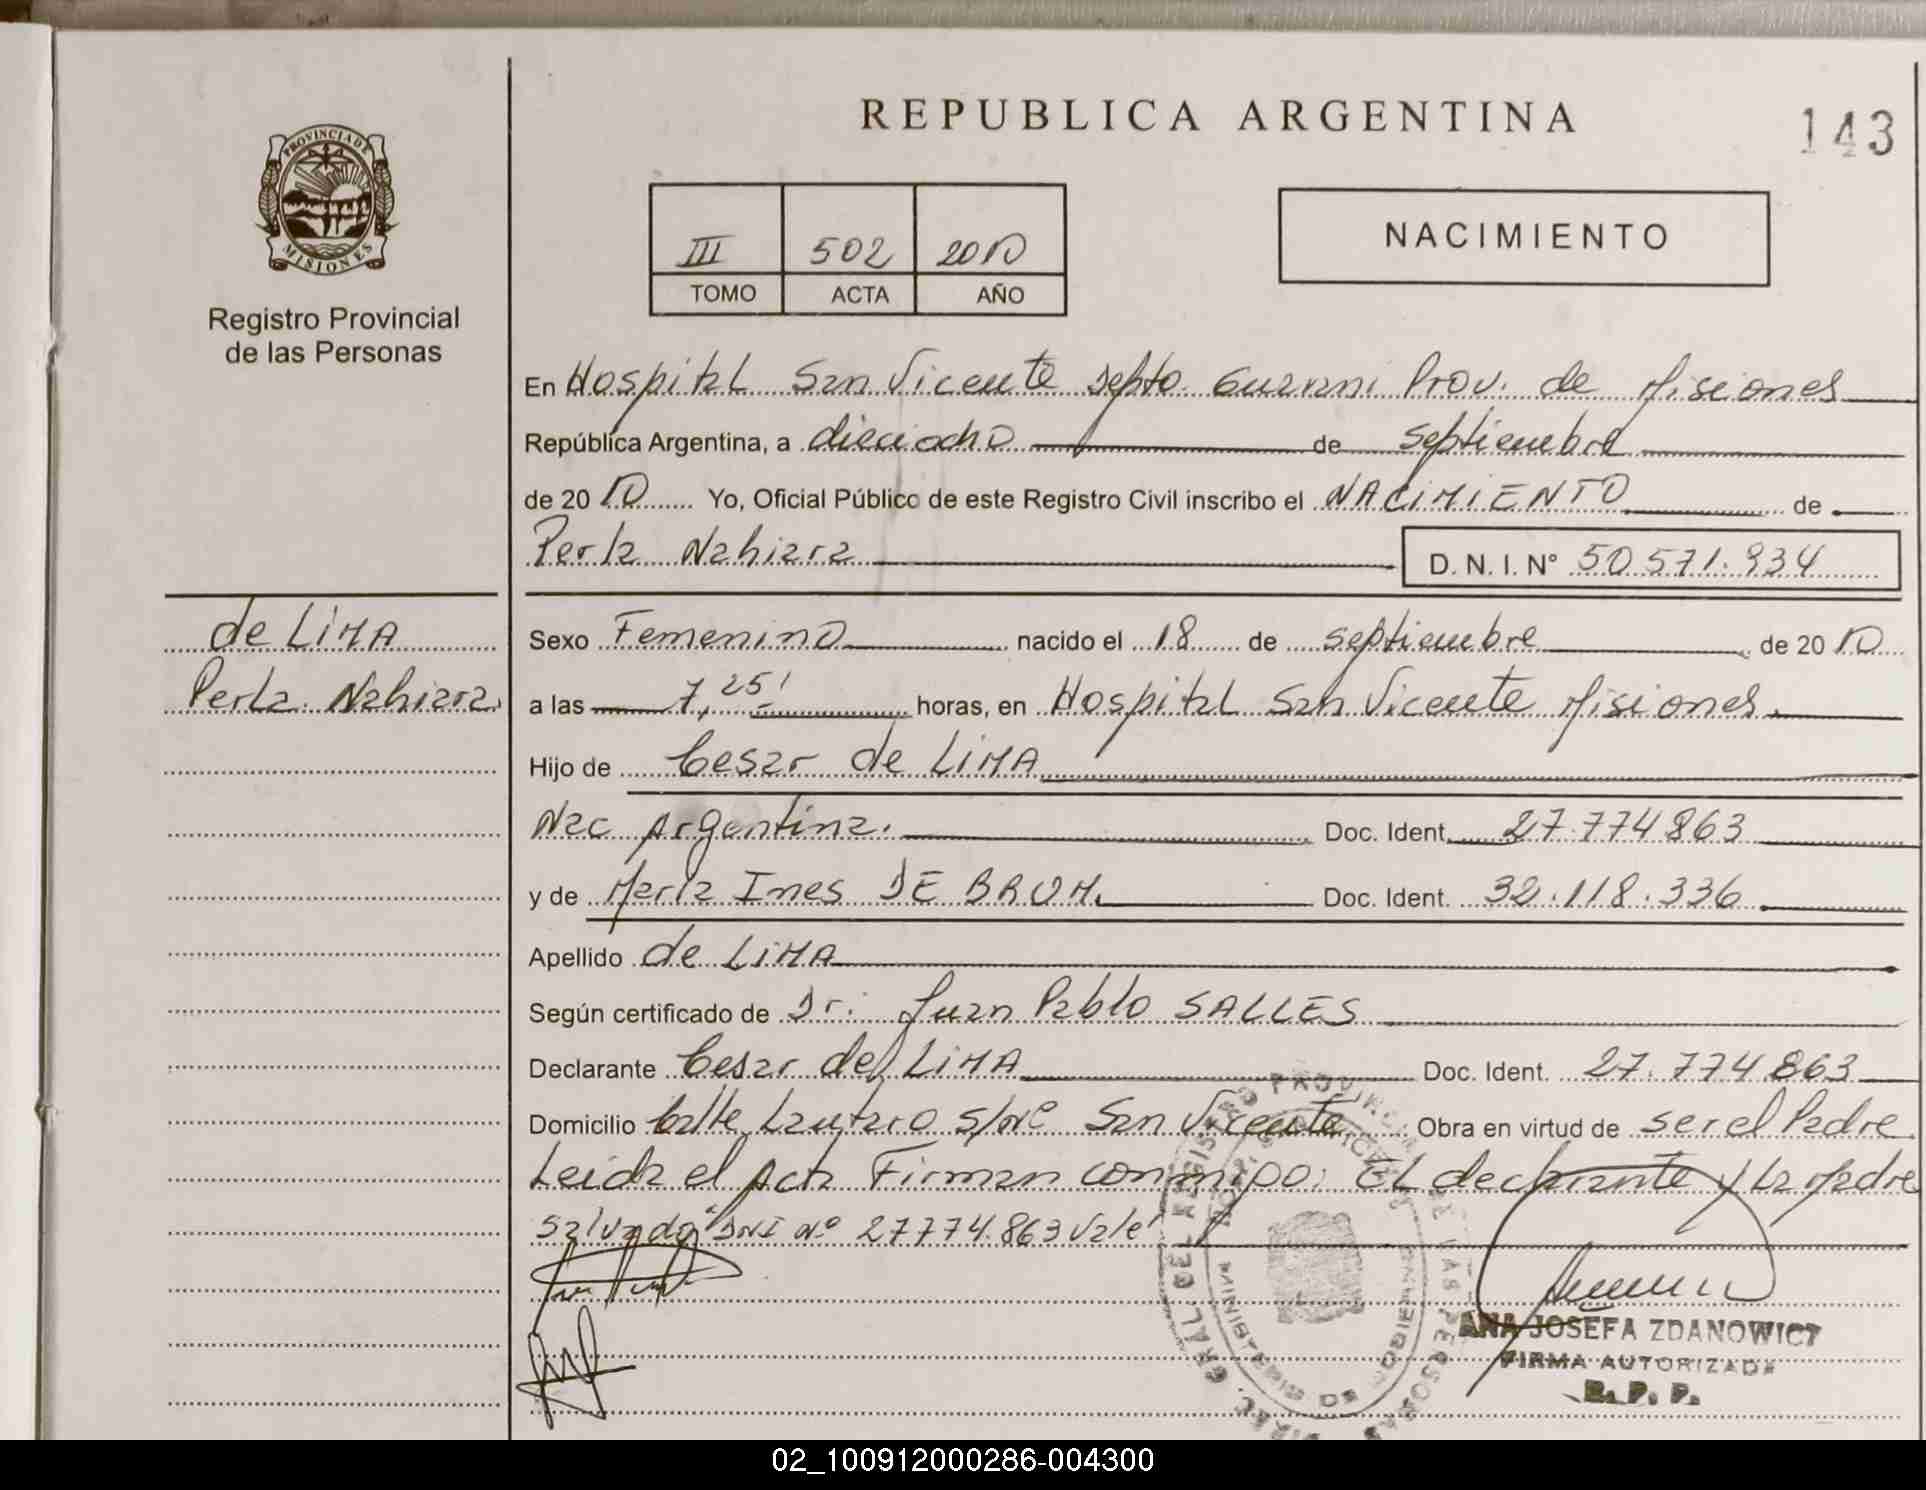 REPUBLICA ARGENTINA
143
PROVINCIA DE
MISIONES
Registro Provincial
de las Personas
III 502 2010
TOMO ACTA AÑO
NACIMIENTO
En Hospital San Vicente Depto. Guarani Prov. de Misiones
República Argentina, a dieciocho de septiembre
de 20 10 Yo, Oficial Público de este Registro Civil inscribo el NACIMIENTO de
Perla Nahiara D. N. I. N° 50.571.934
de LIMA
Perla Nahiara
Sexo Femenino nacido el 18 de septiembre de 20 10
a las 7,25' horas, en Hospital San Vicente Misiones.
Hijo de Cesar de LIMA
Nac Argentina. Doc. Ident. 27.774.863
y de Maria Ines DE BRUM. Doc. Ident. 32.118.336
Apellido de LIMA
Según certificado de Dr: Juan Pablo SALLES
Declarante Cesar de LIMA Doc. Ident. 27.774.863
Domicilio Calle Lautaro s/Nº San Vicente Obra en virtud de ser el Padre
Leida el Acta Firman conmigo: El declarante y La Madre
Salvado "DNI Nº 27774.863 Vale"
ANA JOSEFA ZDANOWICZ
FIRMA AUTORIZADA
R. P. P.
DIREC. GRAL. DEL REGISTRO PROVINCIAL DE LAS PERSONAS
MINISTERIO DE GOBIERNO
02_100912000286-004300